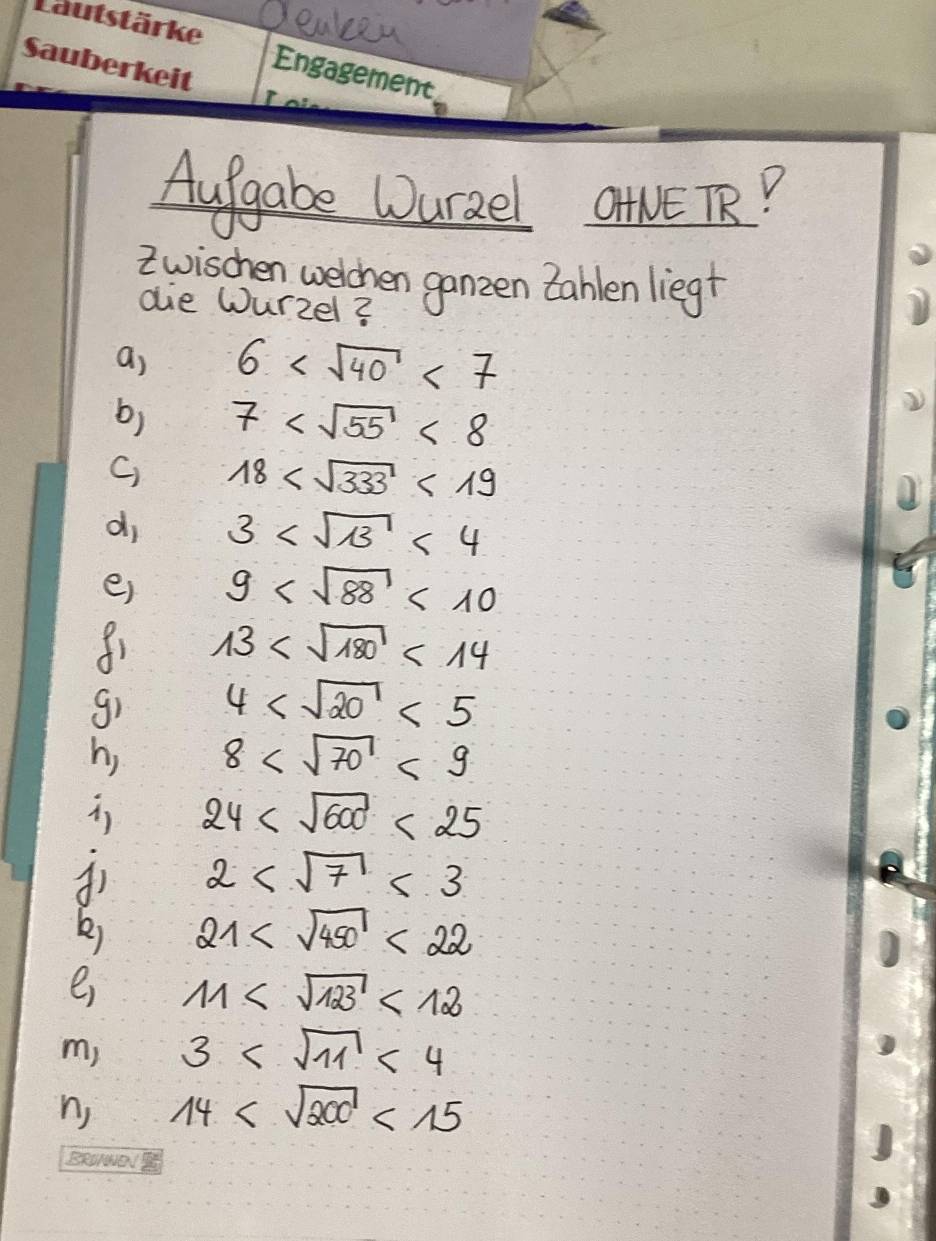 Lautstärke
Sauberkeit
denken
Engagement
Aufgabe Wurzel OHNE TR!
Zwischen welchen ganzen Zahlen liegt
die Wurzel?
a) 6 < √40 < 7
b) 7 < √55 < 8
c) 18 < √333 < 19
d) 3 < √13 < 4
e) 9 < √88 < 10
f) 13 < √180 < 14
g) 4 < √20 < 5
h) 8 < √70 < 9
i) 24 < √600 < 25
j) 2 < √7 < 3
k) 21 < √450 < 22
l) 11 < √123 < 12
m) 3 < √11 < 4
n) 14 < √200 < 15
BRUNNEN